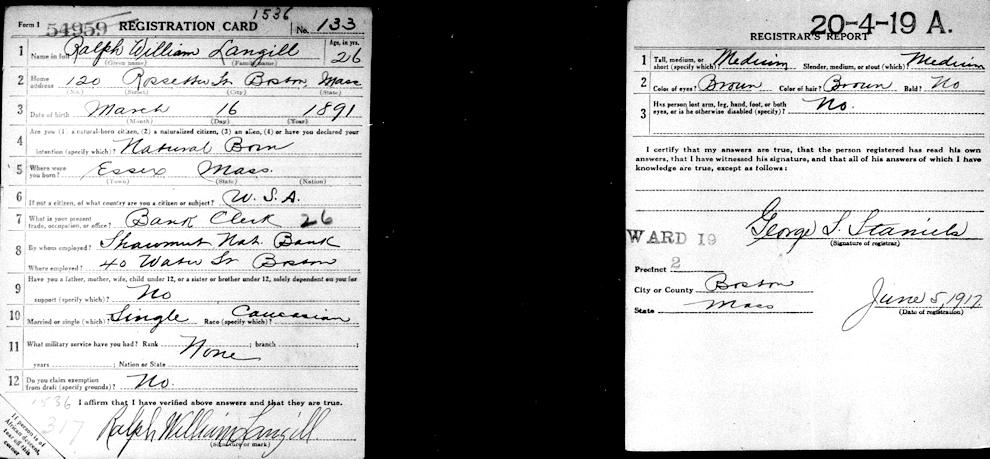 1536
Form 1 54959 REGISTRATION CARD No. 133
1 Name in full Ralph William Langill Age, in yrs. 26
(Given name) (Family name)
2 Home address 120 St Boston, Mass
(No.) (Street) (City) (State)
3 Date of birth March 16 1891
(Month) (Day) (Year)
Are you (1) a natural-born citizen, (2) a naturalized citizen, (3) an alien, (4) or have you declared your
4 intention (specify which)? Natural Born
5 Where were you born? Essex Mass.
(Town) (State) (Nation)
6 If not a citizen, of what country are you a citizen or subject? U.S.A.
7 What is your present trade, occupation, or office? Bank Clerk 26
8 By whom employed? Shawmut Nat. Bank
Where employed? 40 Water St Boston
Have you a father, mother, wife, child under 12, or a sister or brother under 12, solely dependent on you for
9 support (specify which)? No
10 Married or single (which)? Single Race (specify which)? Caucasian
11 What military service have you had? Rank None ; branch ;
years ; Nation or State
12 Do you claim exemption from draft (specify grounds)? No.
1536 I affirm that I have verified above answers and that they are true.
317
Ralph William Langill
(Signature or mark)
If person is of
African descent,
tear off this
corner
20-4-19 A.
REGISTRAR'S REPORT
1 Tall, medium, or short (specify which)? Medium Slender, medium, or stout (which)? Medium
2 Color of eyes? Brown Color of hair? Brown Bald? No
3 Has person lost arm, leg, hand, foot, or both eyes, or is he otherwise disabled (specify)? No.
I certify that my answers are true, that the person registered has read his own
answers, that I have witnessed his signature, and that all of his answers of which I have
knowledge are true, except as follows:
George S. Staniels
(Signature of registrar)
WARD 19
Precinct 2
City or County Boston
State Mass
June 5, 1917
(Date of registration)